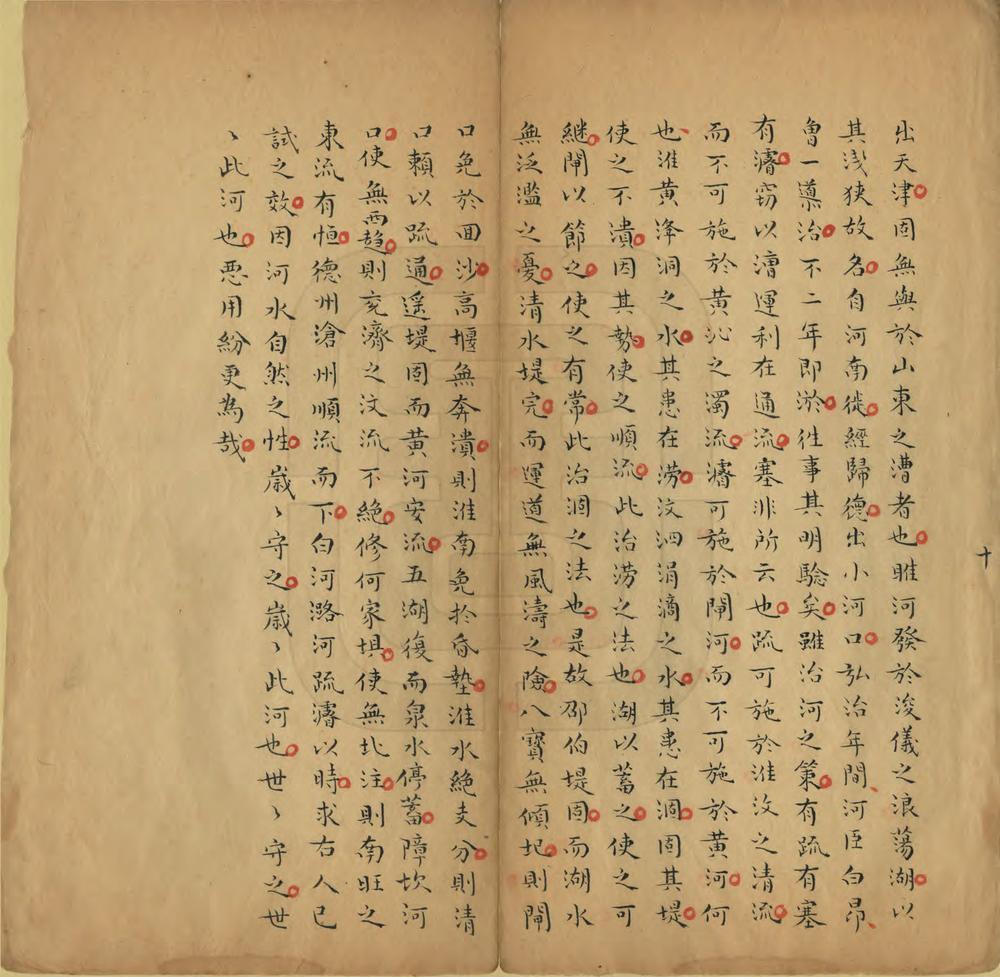 出天津固無與於山東之漕者也睢河發於浚儀之浪蕩湖以
其淺狹故名自河南徙經歸德出小河口弘治年間河臣白昂
魯一導治不二年即淤徃事其明驗矣雖治河之策有疏有塞
有濬窃以漕運利在通流塞非所云也疏可施於淮汶之清流
而不可施於黃沁之濁流濬可施於閘河而不可施於黃河何
也淮黃洚洞之水其患在澇汶泗涓滴之水其患在涸固其堤
使之不潰因其勢使之順流此治澇之法也湖以蓄之使之可
継閘以節之使之有常此治涸之法也是故邵伯堤固而湖水
無泛濫之憂清水堤完而運道無風濤之險八寶無傾圮則閘
口免於回沙高堰無奔潰則淮南免扵昏墊淮水絕支分則清
口賴以疏通遥堤固而黃河安流五湖復而泉水停蓄障坎河
口使無西趋則兗濟之汶流不絕修何家垻使無北注則南旺之
東流有恒德州滄州順流而下白河潞河疏濬以時求右人已
試之效因河水自然之性歲丶守之歲丶此河也世丶守之世
丶此河也悪用紛更為哉
十